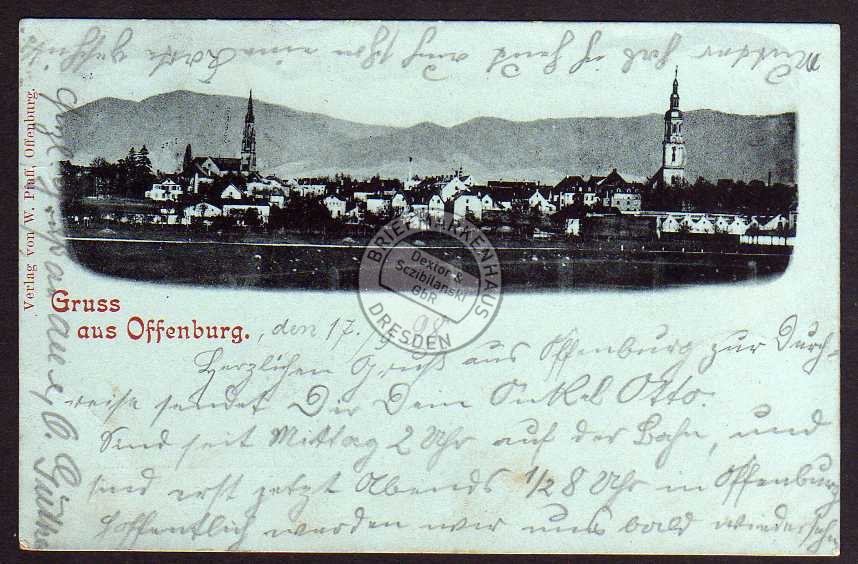 Mutter hab ich hand auch schon eine Karte geschickt
Verlag von W. Pfaff, Offenburg.
BRIEFMARKENHAUS
Dextor &
Sczibilanski
GbR
DRESDEN
Gruss
aus Offenburg. , den 17. 98
Herzlichen Gruß aus Offenburg zur Durch-
reise sendet Dir Dein Onkel Otto.
Sind seit Mittag 2 Uhr auf der Bahn, und
sind erst jetzt Abends 1/2 8 Uhr in Offenburg
hoffentlich werden wir uns bald wiedersehn